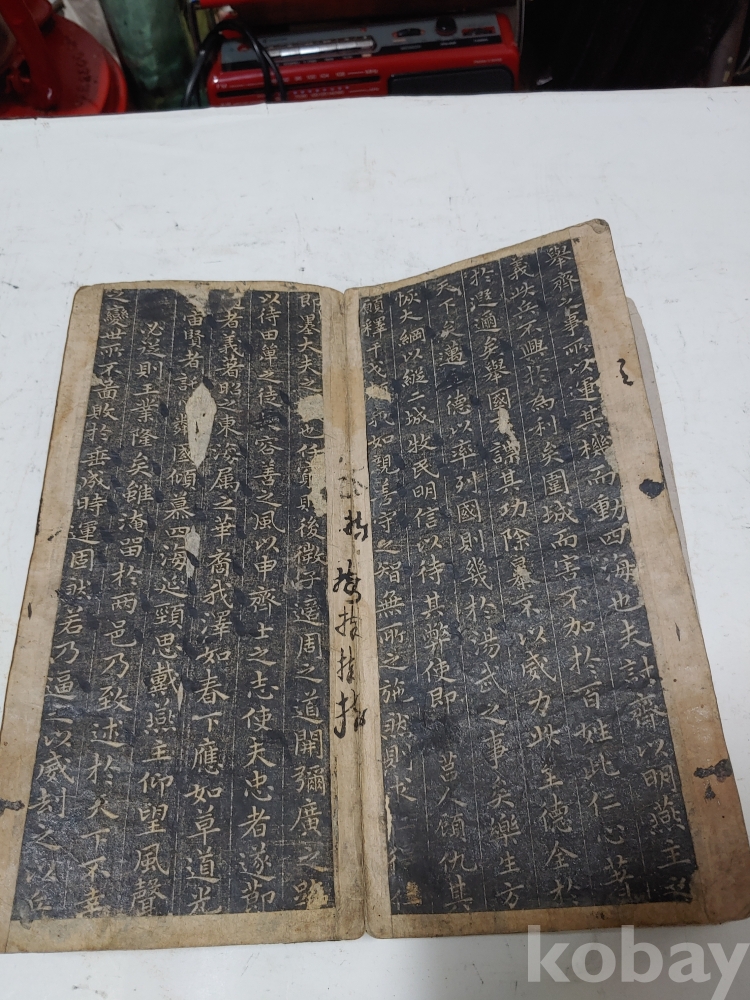 舉齊之事所以運其機而動四海也夫討齊以明燕主
義此兵不興於為利矣圍城而害不加於百姓此仁心著
於遐邇矣舉國 謀其功除暴不以威力此至德全於
天下矣邁 德以率列國則幾於湯武之事矣樂生方
恢大綱以縱二城牧民明信以待其弊使即 莒人顧仇其
願釋干戈 如親善守之智無所之施然則求
指
指 指
即墨大夫之 也任窮則後微子適周之道開彌廣之路
以待田單之徒長容善之風以申齊士之志使夫忠者遂節
者義著昭之東海属之華裔我澤如春下應如草道光
宙賢者託 隣國傾慕四海延頸思戴燕主仰望風聲
必從則王業隆矣雖淹留於兩邑乃致速於天下不幸
之變世所不啚敗於垂成時運固然若乃逼之以威劫之以兵
kobay